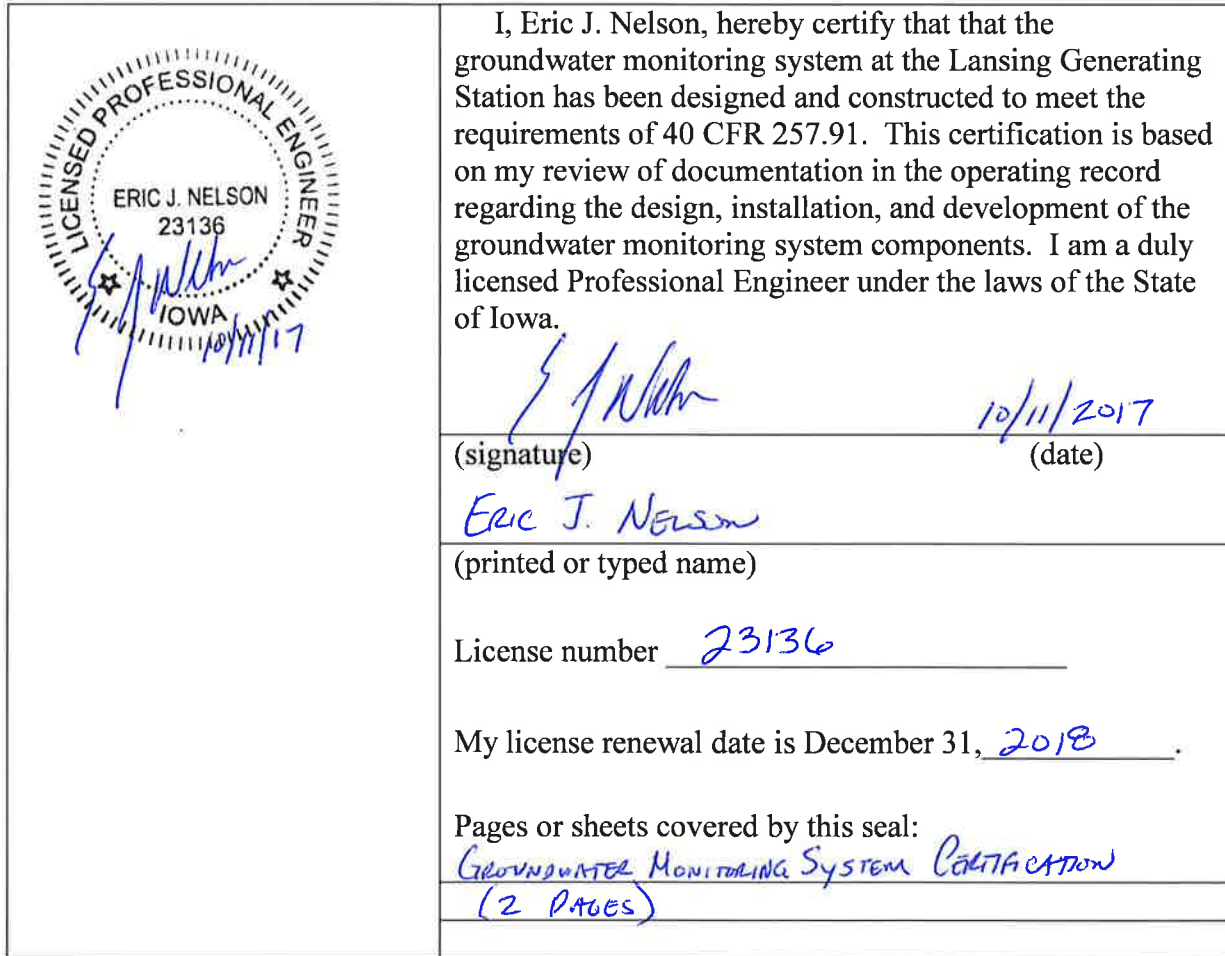 LICENSED PROFESSIONAL ENGINEER
ERIC J. NELSON
23136
IOWA
10/11/17
I, Eric J. Nelson, hereby certify that that the
groundwater monitoring system at the Lansing Generating
Station has been designed and constructed to meet the
requirements of 40 CFR 257.91. This certification is based
on my review of documentation in the operating record
regarding the design, installation, and development of the
groundwater monitoring system components. I am a duly
licensed Professional Engineer under the laws of the State
of Iowa.
10/11/2017
(signature) (date)
ERIC J. NELSON
(printed or typed name)
License number 23136
My license renewal date is December 31, 2018.
Pages or sheets covered by this seal:
GROUNDWATER MONITORING SYSTEM CERTIFICATION
(2 PAGES)